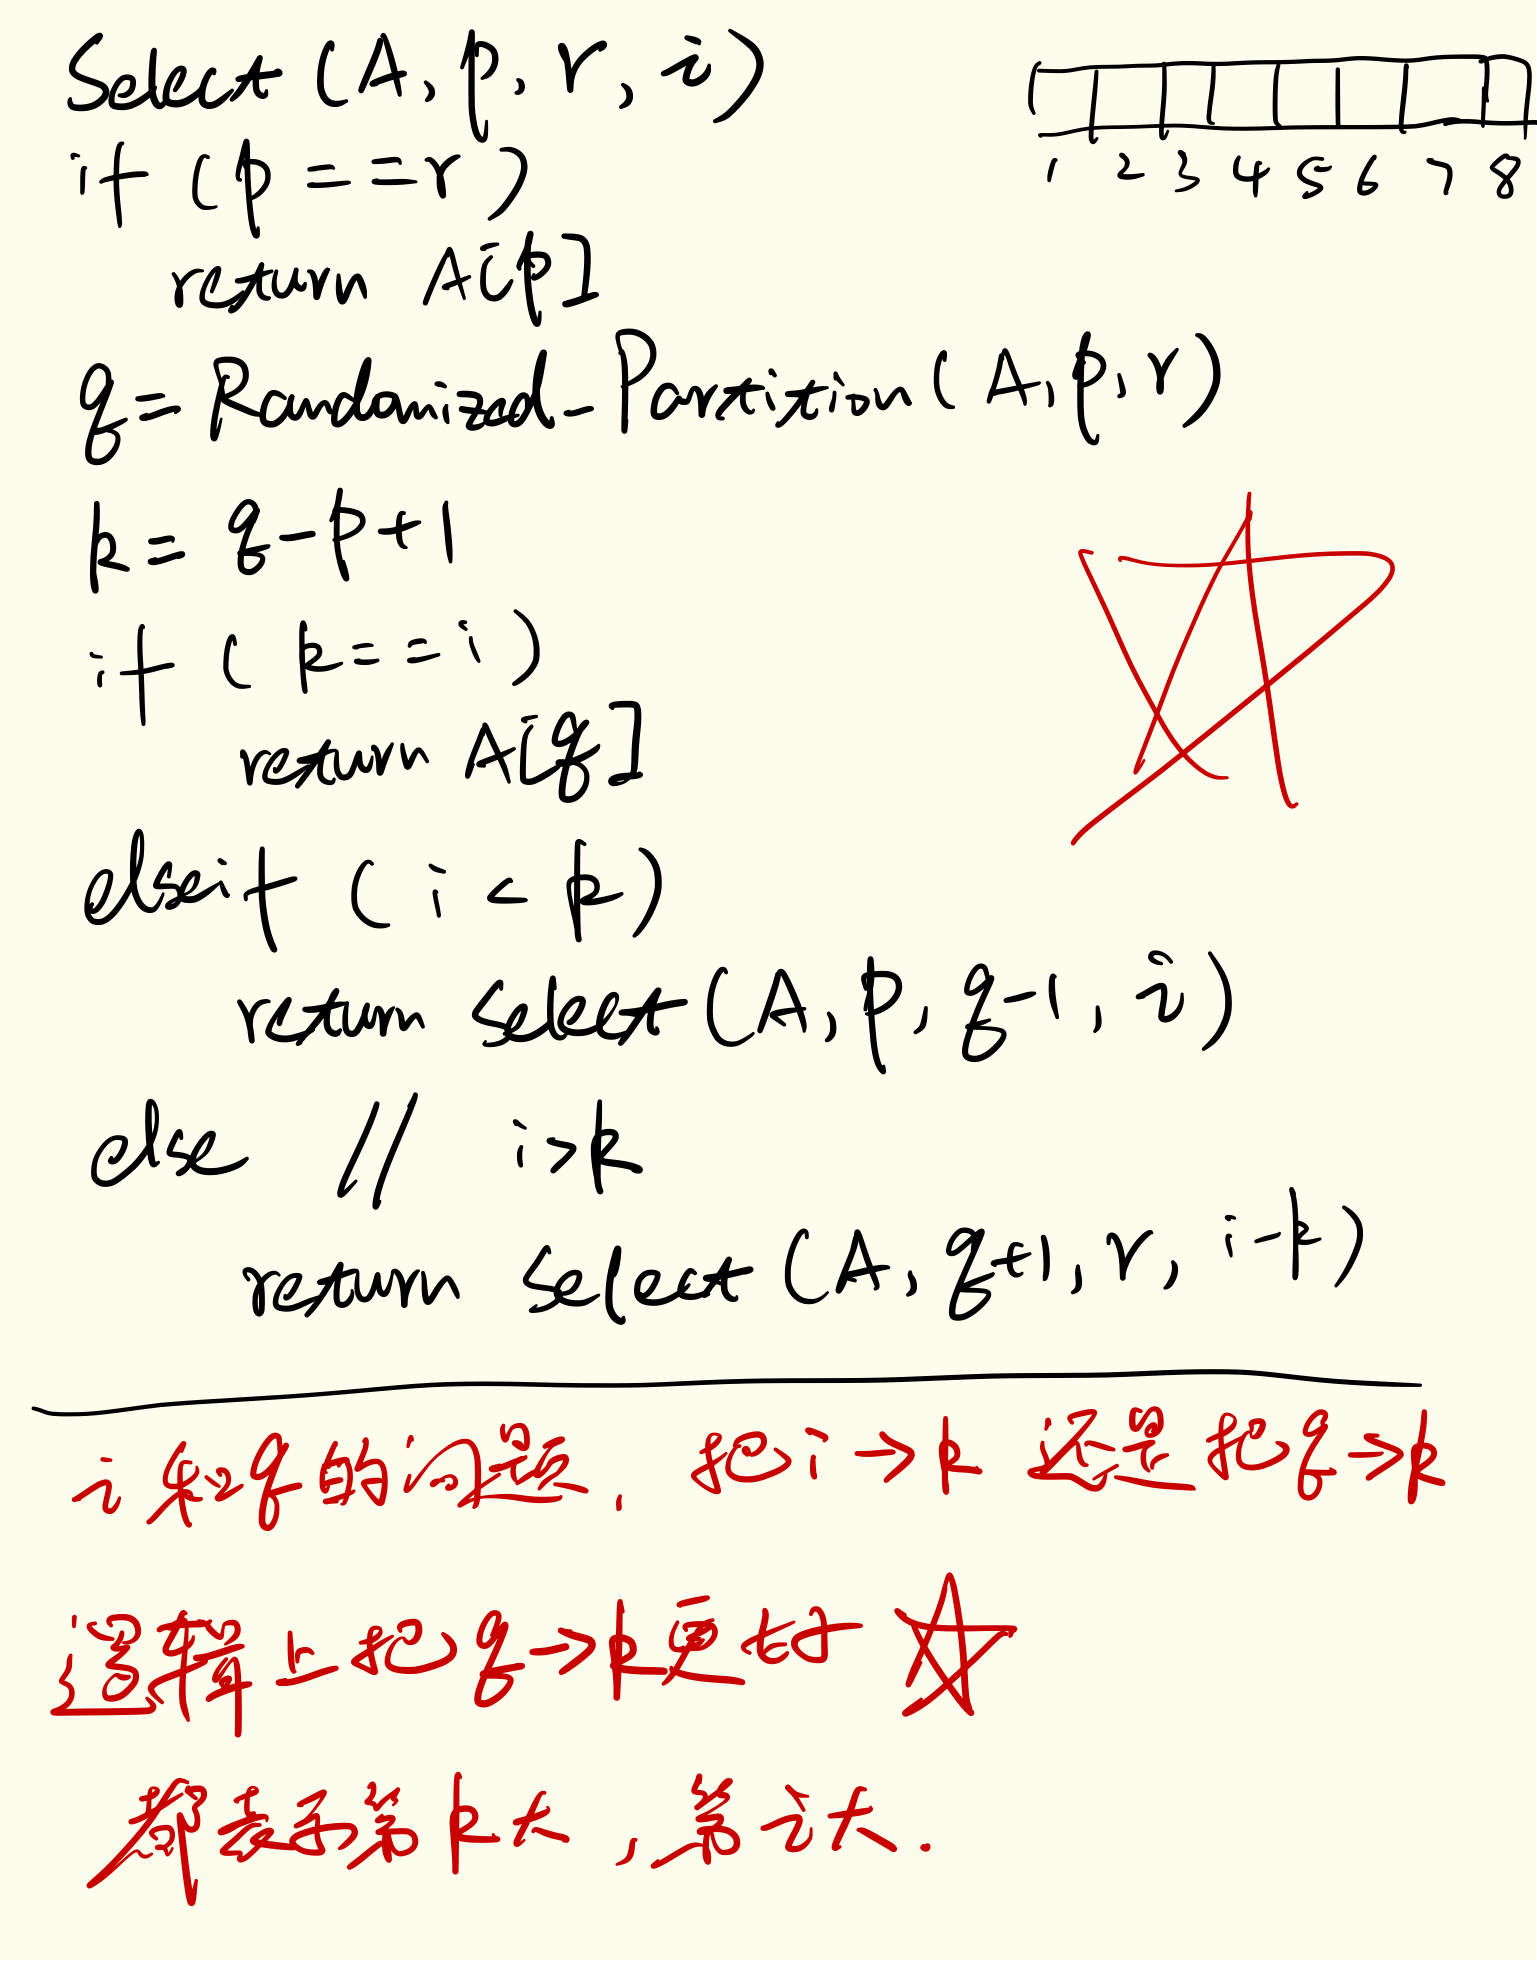 Select (A, p, r, i)
1 2 3 4 5 6 7 8
if (p == r)
return A[p]
q = Randomized-Partition(A, p, r)
k = q-p+1
if (k == i)
return A[q]
elseif (i < k)
return select(A, p, q-1, i)
else // i>k
return select(A, q+1, r, i-k)
i和q的问题. 把i→k 还是把q→k
逻辑上把q→k更好
都表示第k大,第i大.